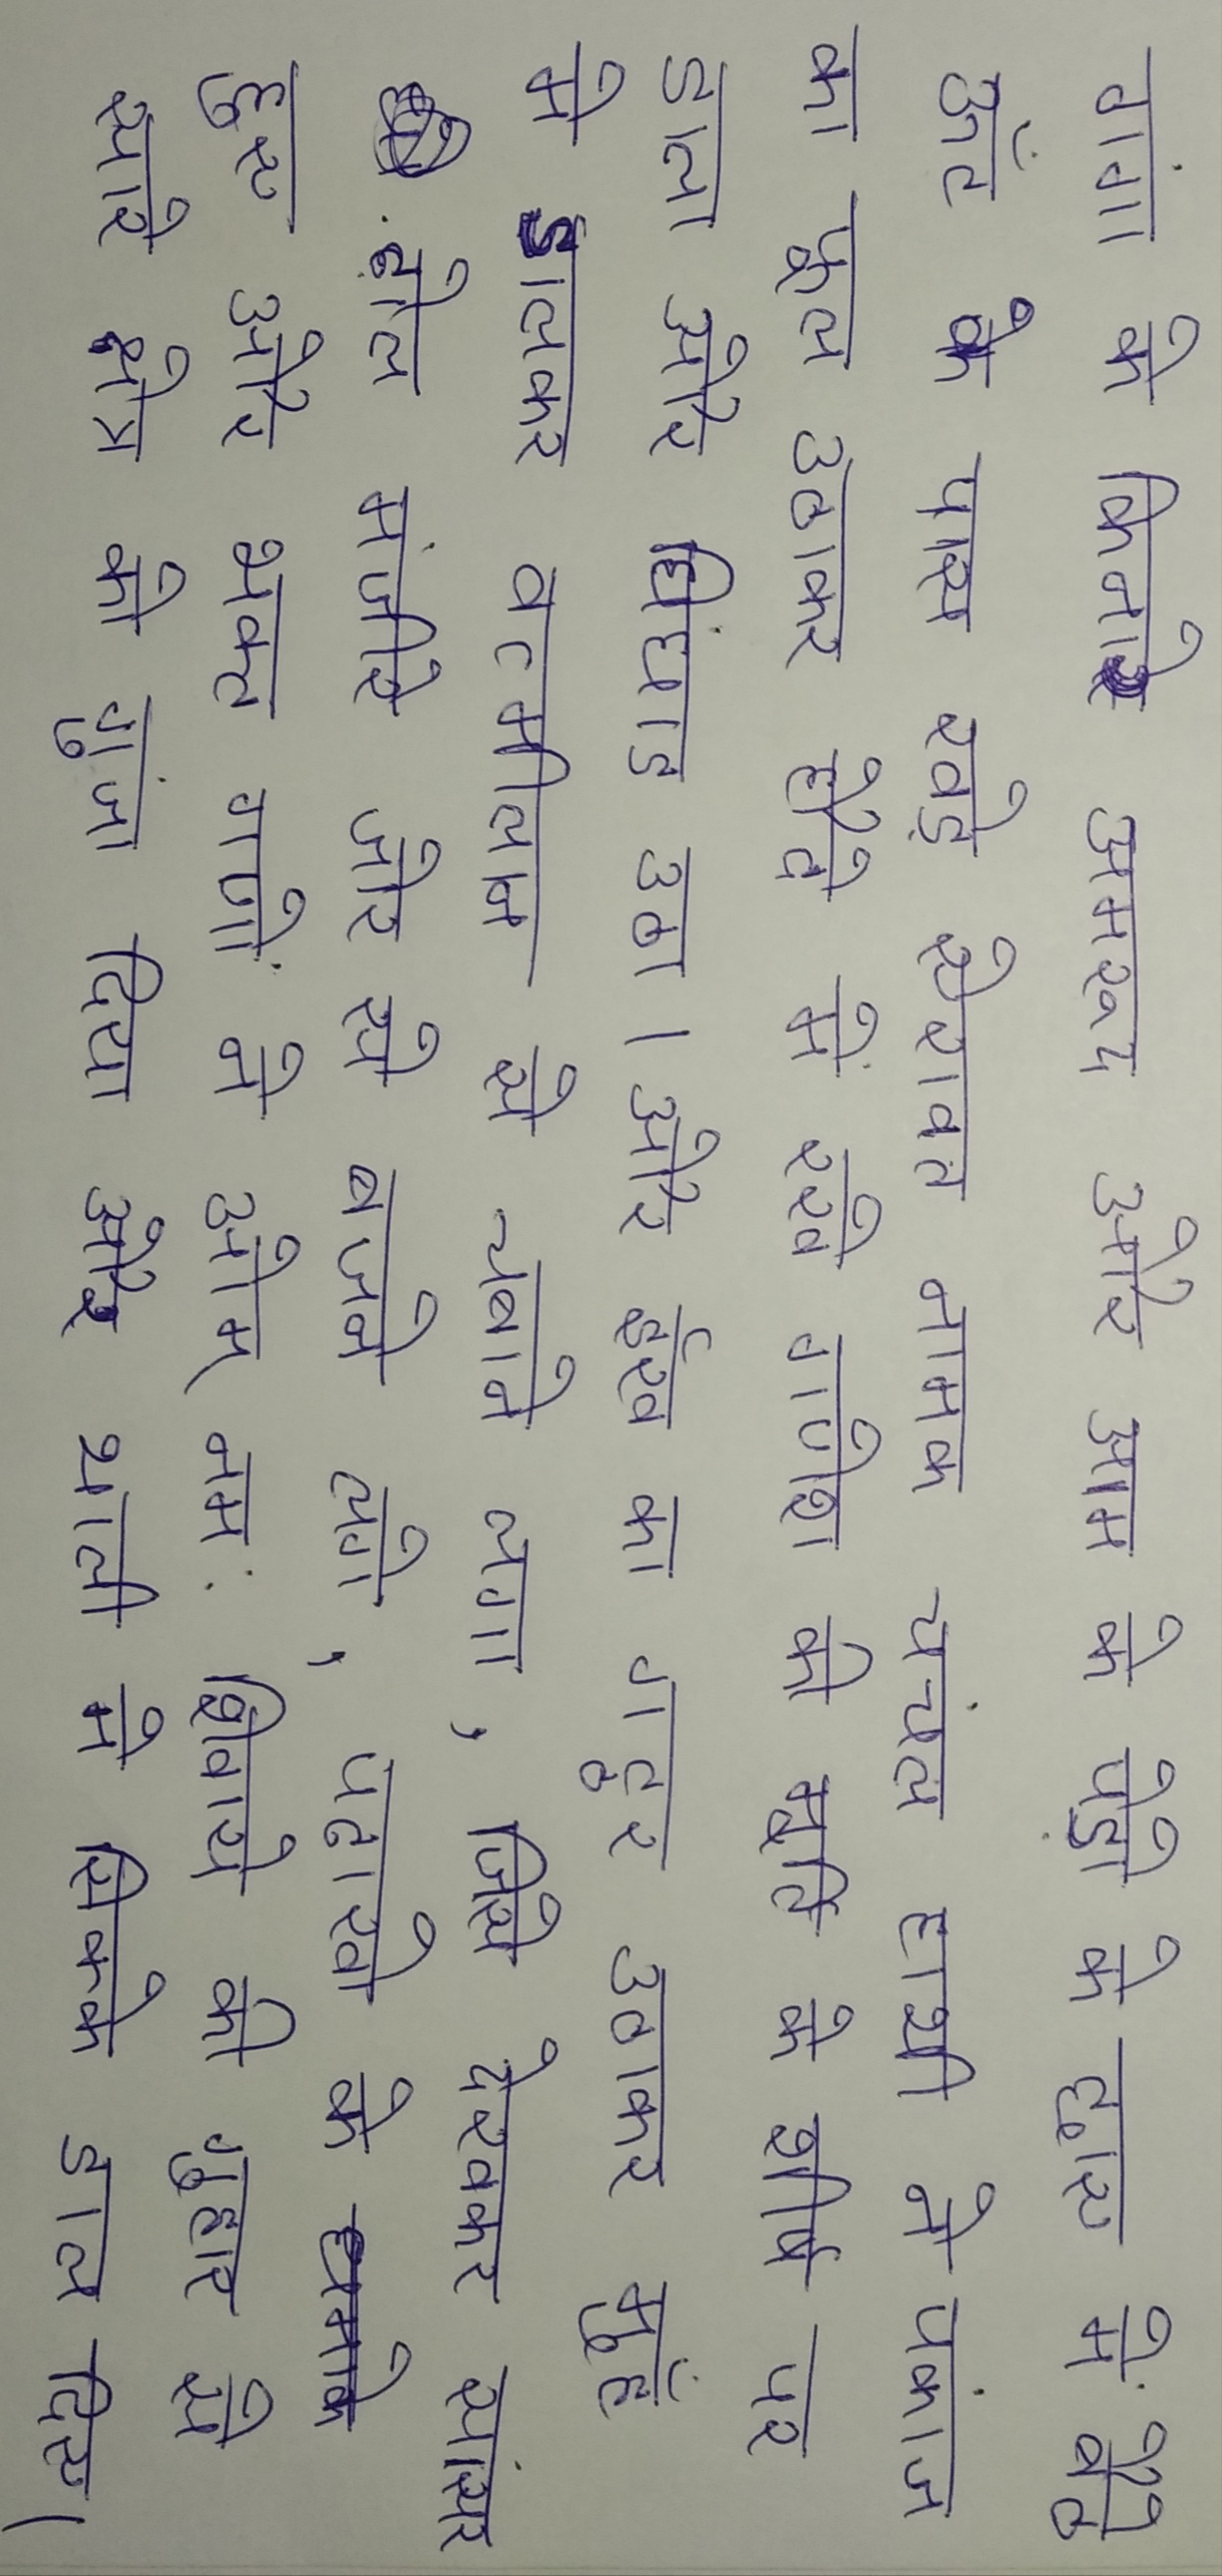 गंगा के किनारे अमरूद और आम के पेड़ो के छाए में बैठे
ऊँट के पास खड़े ऐरावत नामक चचंल हाथी ने पकांज
का फूल उठाकर हौदे में रखे गणेश की मूर्ति के शीर्ष पर
डाला और घिंघाड उठा । और ईख का गट्ठर उठाकर मुहँ
मे डालकर वत्मीलान से चबाने लगा , जिसे देखकर सांसर
ढ़ोल मंजीरे जोर से बजने लगे , पटाखो के धमाके
हुए और भक्त गणों ने ओम् नम: शिवाये की गुहार से
सारे क्षेत्र को गुंजा दिया और थाली मे सिक्के डाल दिए।